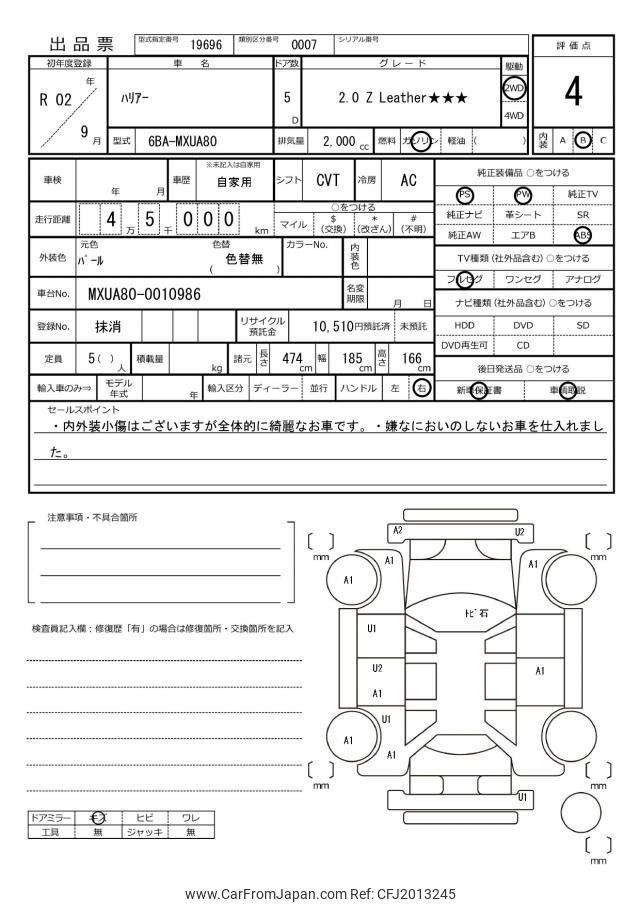 出品票
型式指定番号 19696 類別区分番号 0007 シリアル番号
評価点
4
内装 A B C
初年度登録 車名 ドア数 グレード 駆動
R 02 年 9 月
ハリアー
5 D
2.0 Z Leather★★★
2WD
4WD
型式 6BA-MXUA80 排気量 2,000 cc 燃料 ガソリン 軽油 ( )
車検 年 月 車歴 ※未記入は自家用 自家用 シフト CVT 冷房 AC
走行距離 4 万 5 千 0 0 0 km
○をつける
マイル $ (交換) * (改ざん) # (不明)
外装色 元色 パール 色替 ( 色替無 ) カラーNo. 内装色
車台No. MXUA80-0010986 名変期限 月 日
登録No. 抹消 リサイクル預託金 10,510円預託済 未預託
定員 5 ( ) 人 積載量 kg 諸元 長さ 474 cm 幅 185 cm 高さ 166 cm
輸入車のみ⇒ モデル年式 年 輸入区分 ディーラー 並行 ハンドル 左 右
純正装備品 ○をつける
PS PW 純正TV
純正ナビ 革シート SR
純正AW エアB ABS
TV種類 (社外品含む) ○をつける
フルセグ ワンセグ アナログ
ナビ種類 (社外品含む) ○をつける
HDD DVD SD
DVD再生可 CD
後日発送品 ○をつける
新車保証書 車輌取説
セールスポイント
・内外装小傷はございますが全体的に綺麗なお車です。・嫌なにおいのしないお車を仕入れまし
た。
注意事項・不具合箇所
検査員記入欄：修復歴「有」の場合は修復箇所・交換箇所を記入
ドアミラー キズ ヒビ ワレ
工具 無 ジャッキ 無
A2 U2
mm A1 A1 mm
A1 A1
トビ石
U1
U2 A1
A1
U1
A1 A1
A1
mm mm
U1
mm
www.CarFromJapan.com Ref: CFJ2013245